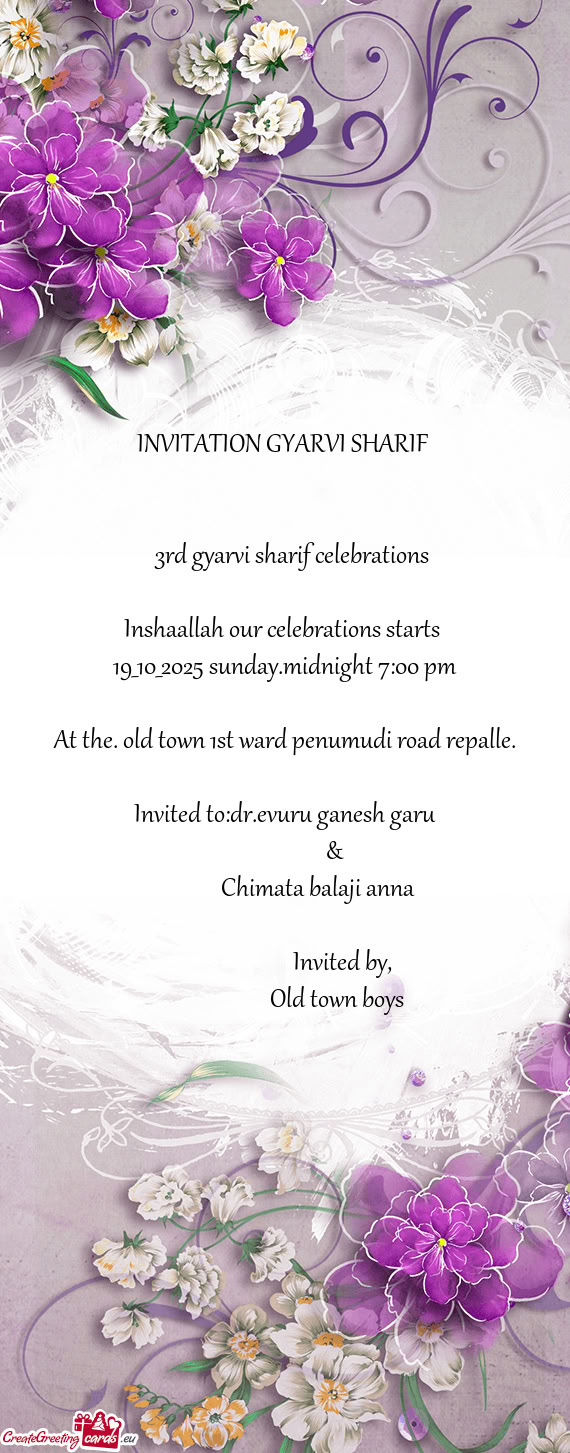 INVITATION GYARVI SHARIF
3rd gyarvi sharif celebrations
Inshaallah our celebrations starts
19_10_2025 sunday.midnight 7:00 pm
At the. old town 1st ward penumudi road repalle.
Invited to:dr.evuru ganesh garu
&
Chimata balaji anna
Invited by,
Old town boys
CreateGreeting cards .eu